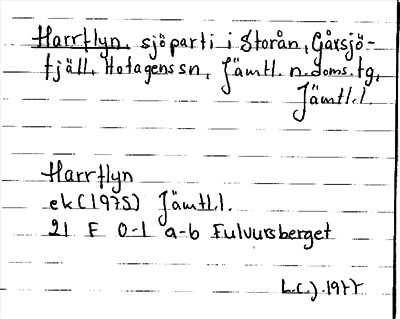 Harrflyn, sjöparti i Storån, Gårsjö-
fjäll, Hotagens sn, Jämtl. n. doms. tg,
Jämtl. l.
Harrflyn
ek (1975) Jämtl. l.
21 F 0-1 a-b Fulvursberget
L.C.J. 1977